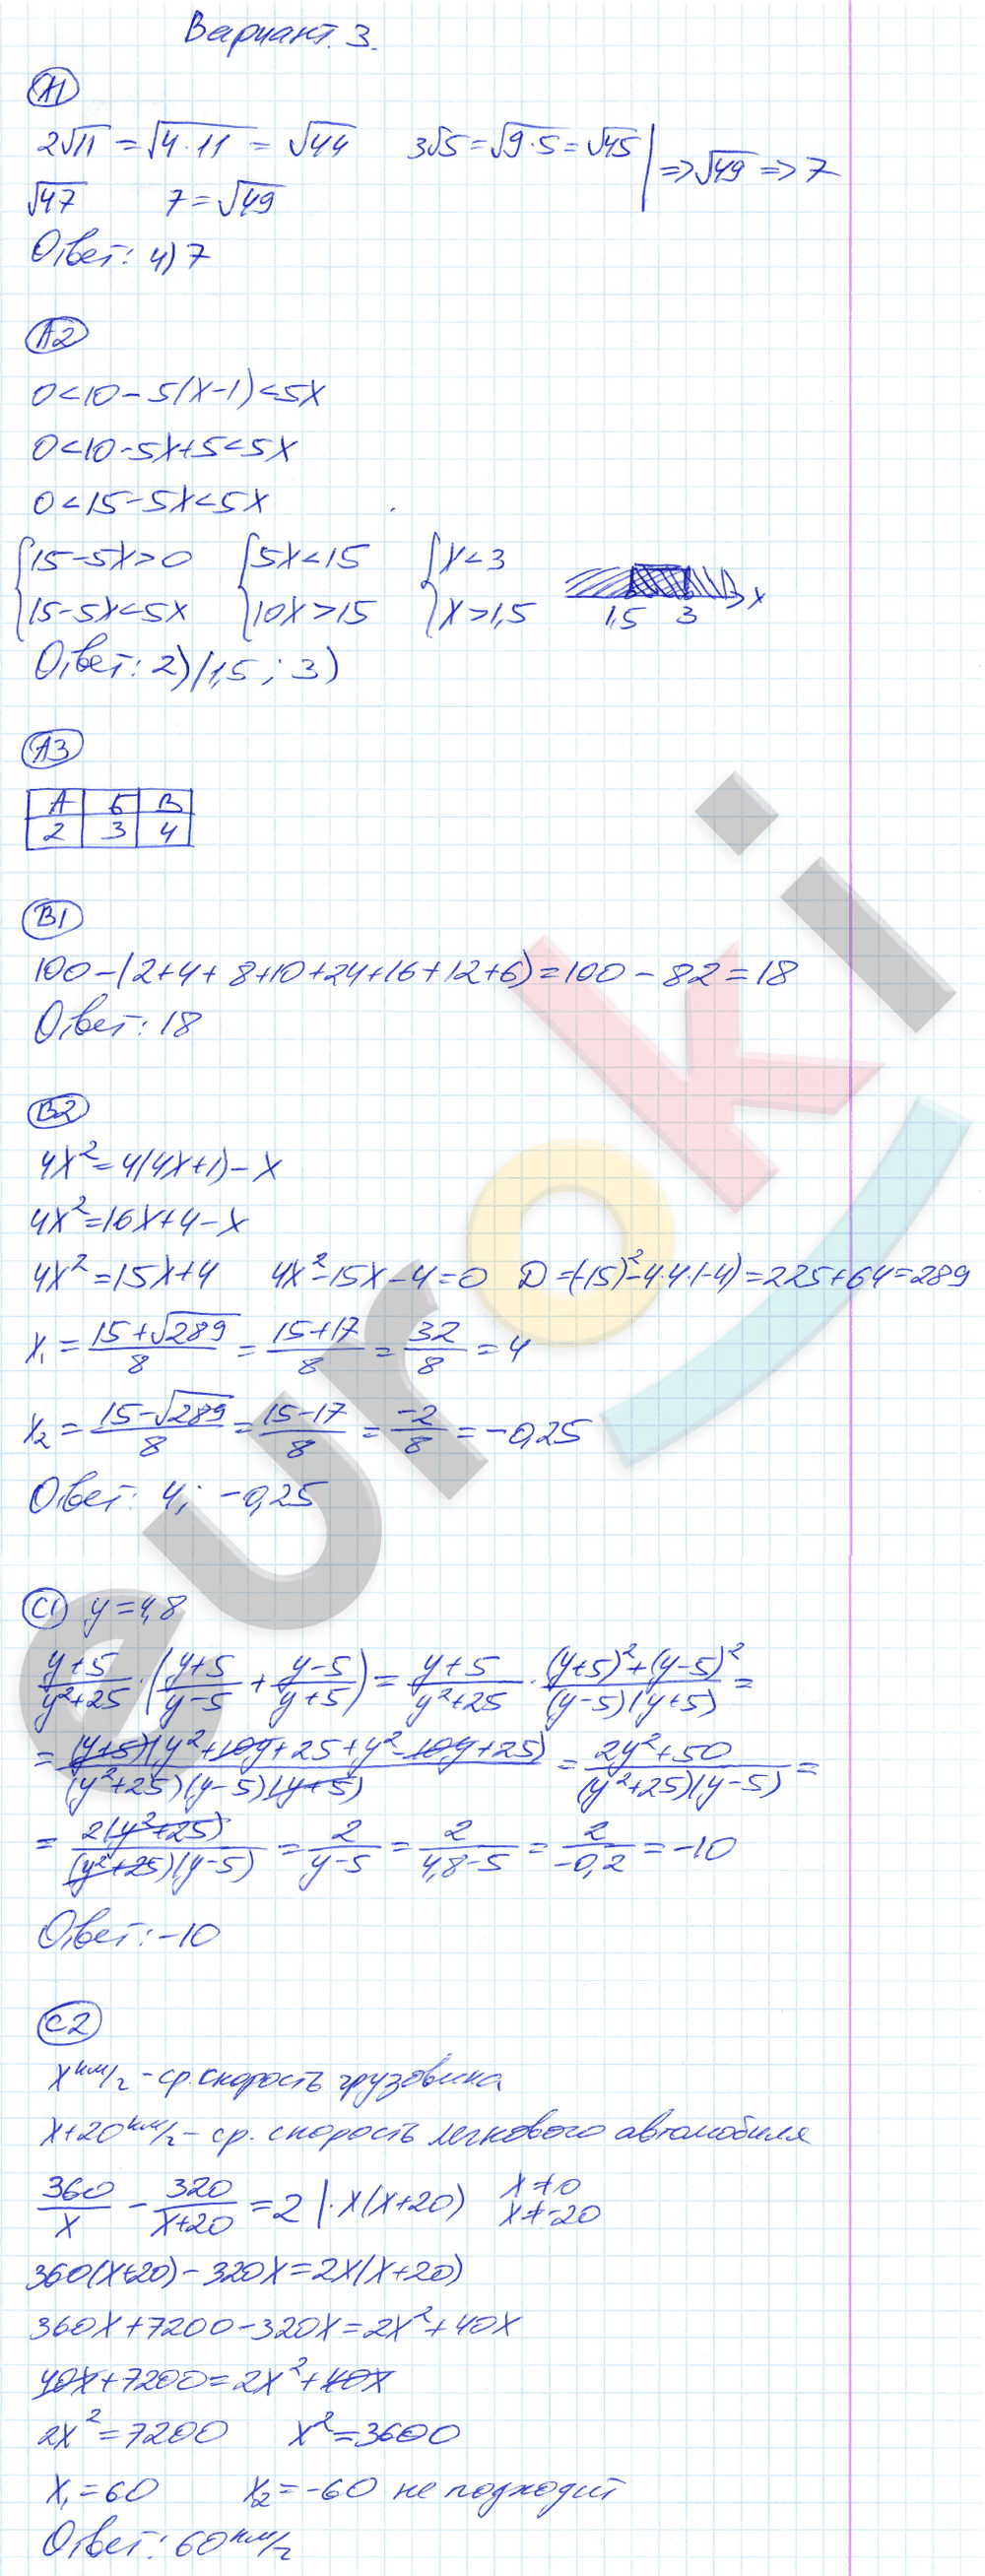 Вариант 3.
А1
2√11 = √4·11 = √44 3√5 = √9·5 = √45 | => √49 => 7
√47 7 = √49
Ответ: 4) 7
А2
0<10-5(x-1)<5x
0<10-5x+5<5x
0<15-5x<5x
{15-5x>0 {5x<15 {x<3
{15-5x<5x {10x>15 {x>1,5 1,5 3 x
Ответ: 2) (1,5; 3)
А3
А Б В
2 3 4
В1
100-(2+4+8+10+24+16+12+6)=100-82=18
Ответ: 18
В2
4x²=4(4x+1)-x
4x²=16x+4-x
4x²=15x+4 4x²-15x-4=0 D=(-15)²-4·4·(-4)=225+64=289
x₁ = (15+√289)/8 = (15+17)/8 = 32/8 = 4
x₂ = (15-√289)/8 = (15-17)/8 = -2/8 = -0,25
Ответ: 4; -0,25
С1 y=4,8
(y+5)/(y²+25) · ((y+5)/(y-5) + (y-5)/(y+5)) = (y+5)/(y²+25) · ((y+5)²+(y-5)²)/((y-5)(y+5)) =
= ((y+5)(y²+10y+25+y²-10y+25))/((y²+25)(y-5)(y+5)) = (2y²+50)/((y²+25)(y-5)) =
= (2(y²+25))/((y²+25)(y-5)) = 2/(y-5) = 2/(4,8-5) = 2/(-0,2) = -10
Ответ: -10
С2
x км/г - ср. скорость грузовика
x+20 км/г - ср. скорость легкового автомобиля
360/x - 320/(x+20) = 2 | ·x(x+20) x≠0
x≠-20
360(x+20)-320x=2x(x+20)
360x+7200-320x=2x²+40x
40x+7200=2x²+40x
2x²=7200 x²=3600
x₁=60 x₂=-60 не подходит
Ответ: 60 км/г
euroki